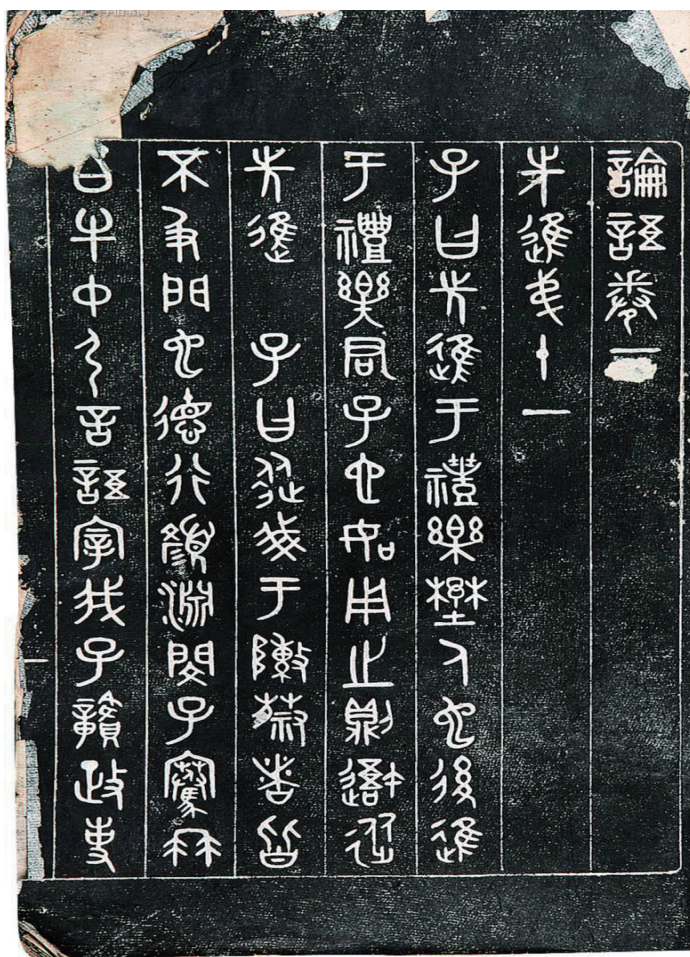 論語卷
先進弟十一
子曰先進于禮樂野人也後進
于禮樂君子也如用之則吾從
先進　子曰從我于陳蔡者皆
不及門也德行顏淵閔子騫冉
白牛中弓言語宰我子贛政事